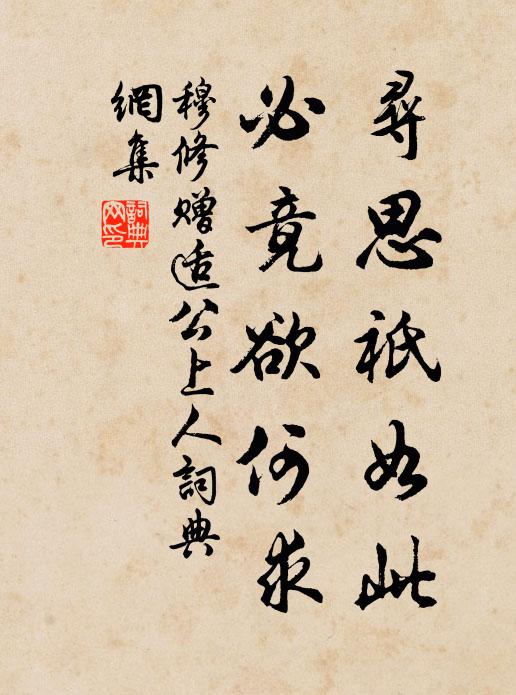 尋思祇如此
必竟欲何求
穆修贈适公上人詞典
網集
詞典
网印